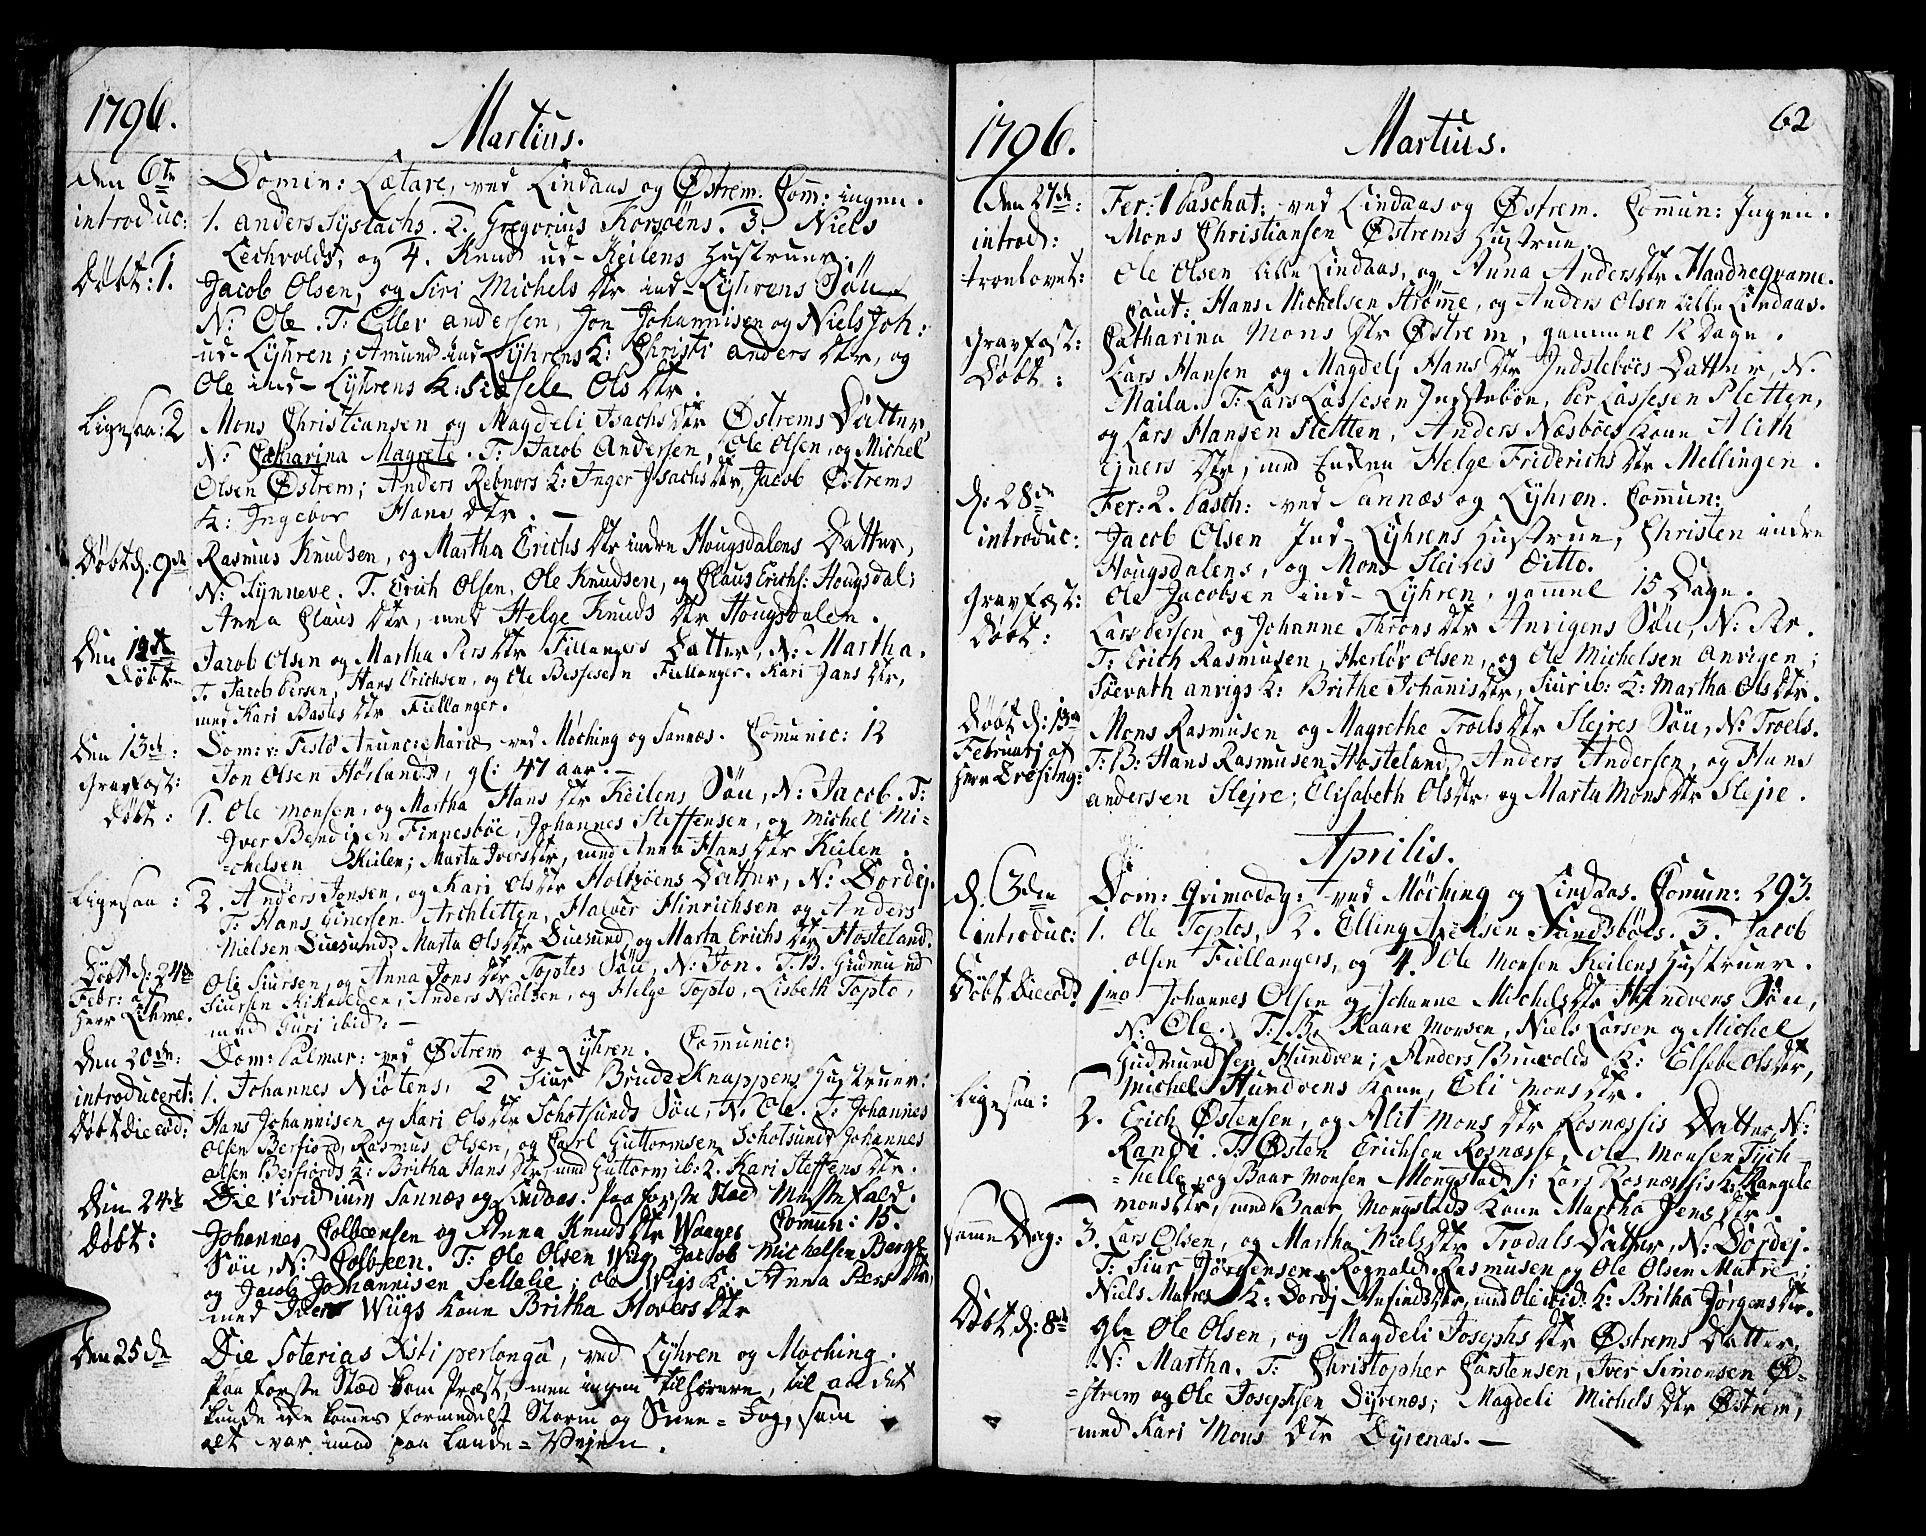 1796.
Martius.
den 6te Domin: Lætare, ved Lindaas og Østrem. Com: ingen.
introduc: 1. Anders Syslachs. 2. Gregorius Korsøens. 3. Niels
Lechvolds, og 4. Knud ud-Keilens Hustruer.
Døbt: 1. Jacob Olsen, og Siri Michels Dtr ind-Lyhrens Søn
N: Ole. T: Eller Andersen, Jon Johannisen og Niels Joh:
ud-Lyhren; Amund ind Lyhrens K: Christi Anders Dtr, og
Ole ind-Lyhrens K: Sidsele Ols Dtr.
Ligesaa: 2 Mons Christiansen og Magdeli Isachs Dtr Østrems Datter,
N: Catharina Magrete. T: Jacob Andersen, Ole Olsen, og Michel
Olsen Østrem; Anders Rebnors K: Inger Isachs Dtr, Jacob Østrems
K: Ingebor Hans Dtr. —
Døbt d: 9de Rasmus Knudsen, og Martha Erichs Dtr indre Hougsdalens Datter,
N: Synneve. T. Erich Olsen, Ole Knudsen, og Claus Erichs: Hougsdal;
Anna Claus Dtr, med Helge Knuds Dtr Hougsdalen.
Den 12te Jacob Olsen og Martha Pers Dtr Fillangers Datter, N: Martha.
Døbt T. Jacob Persen, Hans Erichsen, og Ole Bessesen Fiellanger. Kari Jans Dtr,
med Kari Bastes Dtr Fiellanger.
Den 13de: Dom: v: Festo Anunc: Mariæ ved Møching og Sannæs. Comunic: 12
Gravfæst: Jon Olsen Hørlands, gl: 47 aar. —
Døbt: 1. Ole Monsen, og Martha Hans Dtr Keilens Søn, N: Jacob. T:
Iver Bendixen Finnesbøe, Johannes Steffensen, og Michel Mi=
=chelsen Keilen; Marta Ivers Dtr, med Anna Hans Dtr Keilen.
Ligesaa: 2. Anders Jonsen, og Kari Ols Dtr Holtzøens Datter, N: Dordej.
T: Hans Einersen Archletten, Halver Hinrichsen og Anders
Nielsen Duesund; Marta Ols Dtr Duesund, og Marta Erichs Dtr Hosteland.
Døbt d: 24de Ole Siursen, og Anna Jons Dtr Toptes Søn, N: Jon. T. B. Gudmund
Febr: af Siursen Kikallen, Anders Nielsen, og Helge Topto, Lisbeth Topto,
Herr Lihme. med Guri ibid: —
Den 20de: Dom: Palmar: ved Østrem og Lyhren. Comunic:
introduceret: 1. Johannes Niøtens, 2 Siur Brude Knappens Hustruer.
Døbt die eod: Hans Johannisen og Kari Ols Dtr Schotsunds Søn, N: Ole. T: Johannes
Olsen Berfiord, Rasmus Olsen, og Carl Guttormsen Schotsund, Johannes
Olsen Berfiords K: Britha Hans Dtr, med Guttorm ib: 2. Kari Steffens Dtr.
Den 24de Die viridium Sannæs og Lindaas. Paa første Stæd Messefald.
Døbt: Johannes Colbeensen og Anna Knuds Dtr Waages Comun: 15.
Søn, N: Colbeen. T: Ole Olsen Wiig, Jacob Michelsen Berge
og Jacob Johannisen Sellelie; Ole Wigs K: Anna Pers Dtr,
med Iver Wiigs Kone Britha Hovers Dtr
Den 25de Die Soterias Xsti perlonga, ved Lyhren og Moching.
Paa første Stæd kom Præst, men ingen tilhørere, til at det
kunde ikke kommes formedelst Storm og Snee-Fog, som
alt var imod paa Lande-Vejen.
1796.
Martius.
62
Den 27de: Fer: 1 Paschat: ved Lindaas og Østrem. Comun: Ingen.
introd: Mons Christiansen Østrems Hustrue.
tronlovet: Ole Olsen Lille Lindaas, og Anna Anders Dtr Haadneqvame.
Caut: Hans Michelsen Strømme, og Anders Olsen Lille Lindaas.
Gravfæst: Catharina Mons Dtr Østrem, gammel 12 Dage.
Døbt: Lars Hansen og Magdeli Hans Dtr Indslebøes Datter, N.
Maila. T: Lars Lassesen Indstebøe, Per Lassesen Sletten,
og Lars Hansen Sletten, Anders Næsbøes Kone Alith
Ejners Dtr; med Enken Helge Friderichs Dtr Mellingen.
d: 28de Fer: 2. Pasch: ved Sannæs og Lyhren. Comun:
introduc: Jacob Olsen Ind-Lyhrens Hustrue, Christen indre
Hougsdalens, og Mons Sleires ditto.
Gravfæst: Ole Jacobsen ind-Lyhren, gammel 15 Dage.
Døbt: Lars Persen og Johanne Throns Dtr Anvigens Søn, N: Per.
T: Erich Rasmusen, Herløv Olsen, og Ole Michelsen Anvigen;
Søevath Anvigs K: Brithe Johanis Dtr, Siur ib: K: Martha Ols Dtr.
Døbt d: 13de Mons Rasmusen og Magrethe Troels Dtr Slejres Søn, N: Troels.
Februarj af T: B: Hans Rasmusen Hosteland, Anders Andersen, og Hans
Herr Dresing: Andersen Slejre; Elisabeth Ols Dtr, og Marta Mons Dtr Slejre.
Aprilis.
d. 3den Dom: Qvimodog: ved Møching og Lindaas. Comun: 293.
introduc: 1. Ole Toptos, 2. Elling Nielsen Sundsbøes. 3. Jacob
Olsen Fiellangers, og 4. Ole Monsen Keilens Hustruer.
Døbt die eod: 1mo Johannes Olsen og Johanne Michels Dtr Hundvens Søn,
N: Ole. T: B: Kaare Monsen, Niels Larsen og Michel
Gudmundsen Hundven; Anders Bruvolds K: Elsebe Ols Dtr,
Michel Hundvens Kone, Eli Mons Dtr.
Ligesaa: 2. Erich Østensen, og Alit Mons Dtr Rosnæssis Datter, N:
Randi. T: Østen Erichsen Rosnæsse, Ole Monsen Tych=
=helle, og Baar Monsen Mongstad; Lars Rosnæssis K: Rangele
Mons Dtr, med Baar Mongstads Kone Martha Jens Dtr.
samme Dag: 3. Lars Olsen, og Martha Niels Dtr Trodals Datter, N: Dordej.
T: Siur Jørgensen, Rognald Rasmusen og Ole Olsen Matre;
Niels Matres K: Dordj Anfinds Dtr, med Ole ibid: K: Britha Jørgens Dtr.
Døbt d: 8de gle Ole Olsen, og Magdeli Josephs Dtr Østrems Datter,
N: Martha. T: Christopher Carstensen, Iver Simonsen Ø=
=strem og Ole Josephsen Dyrenæs; Magdeli Michels Dtr Østrem,
med Kari Mons Dtr Dyrenæs. —